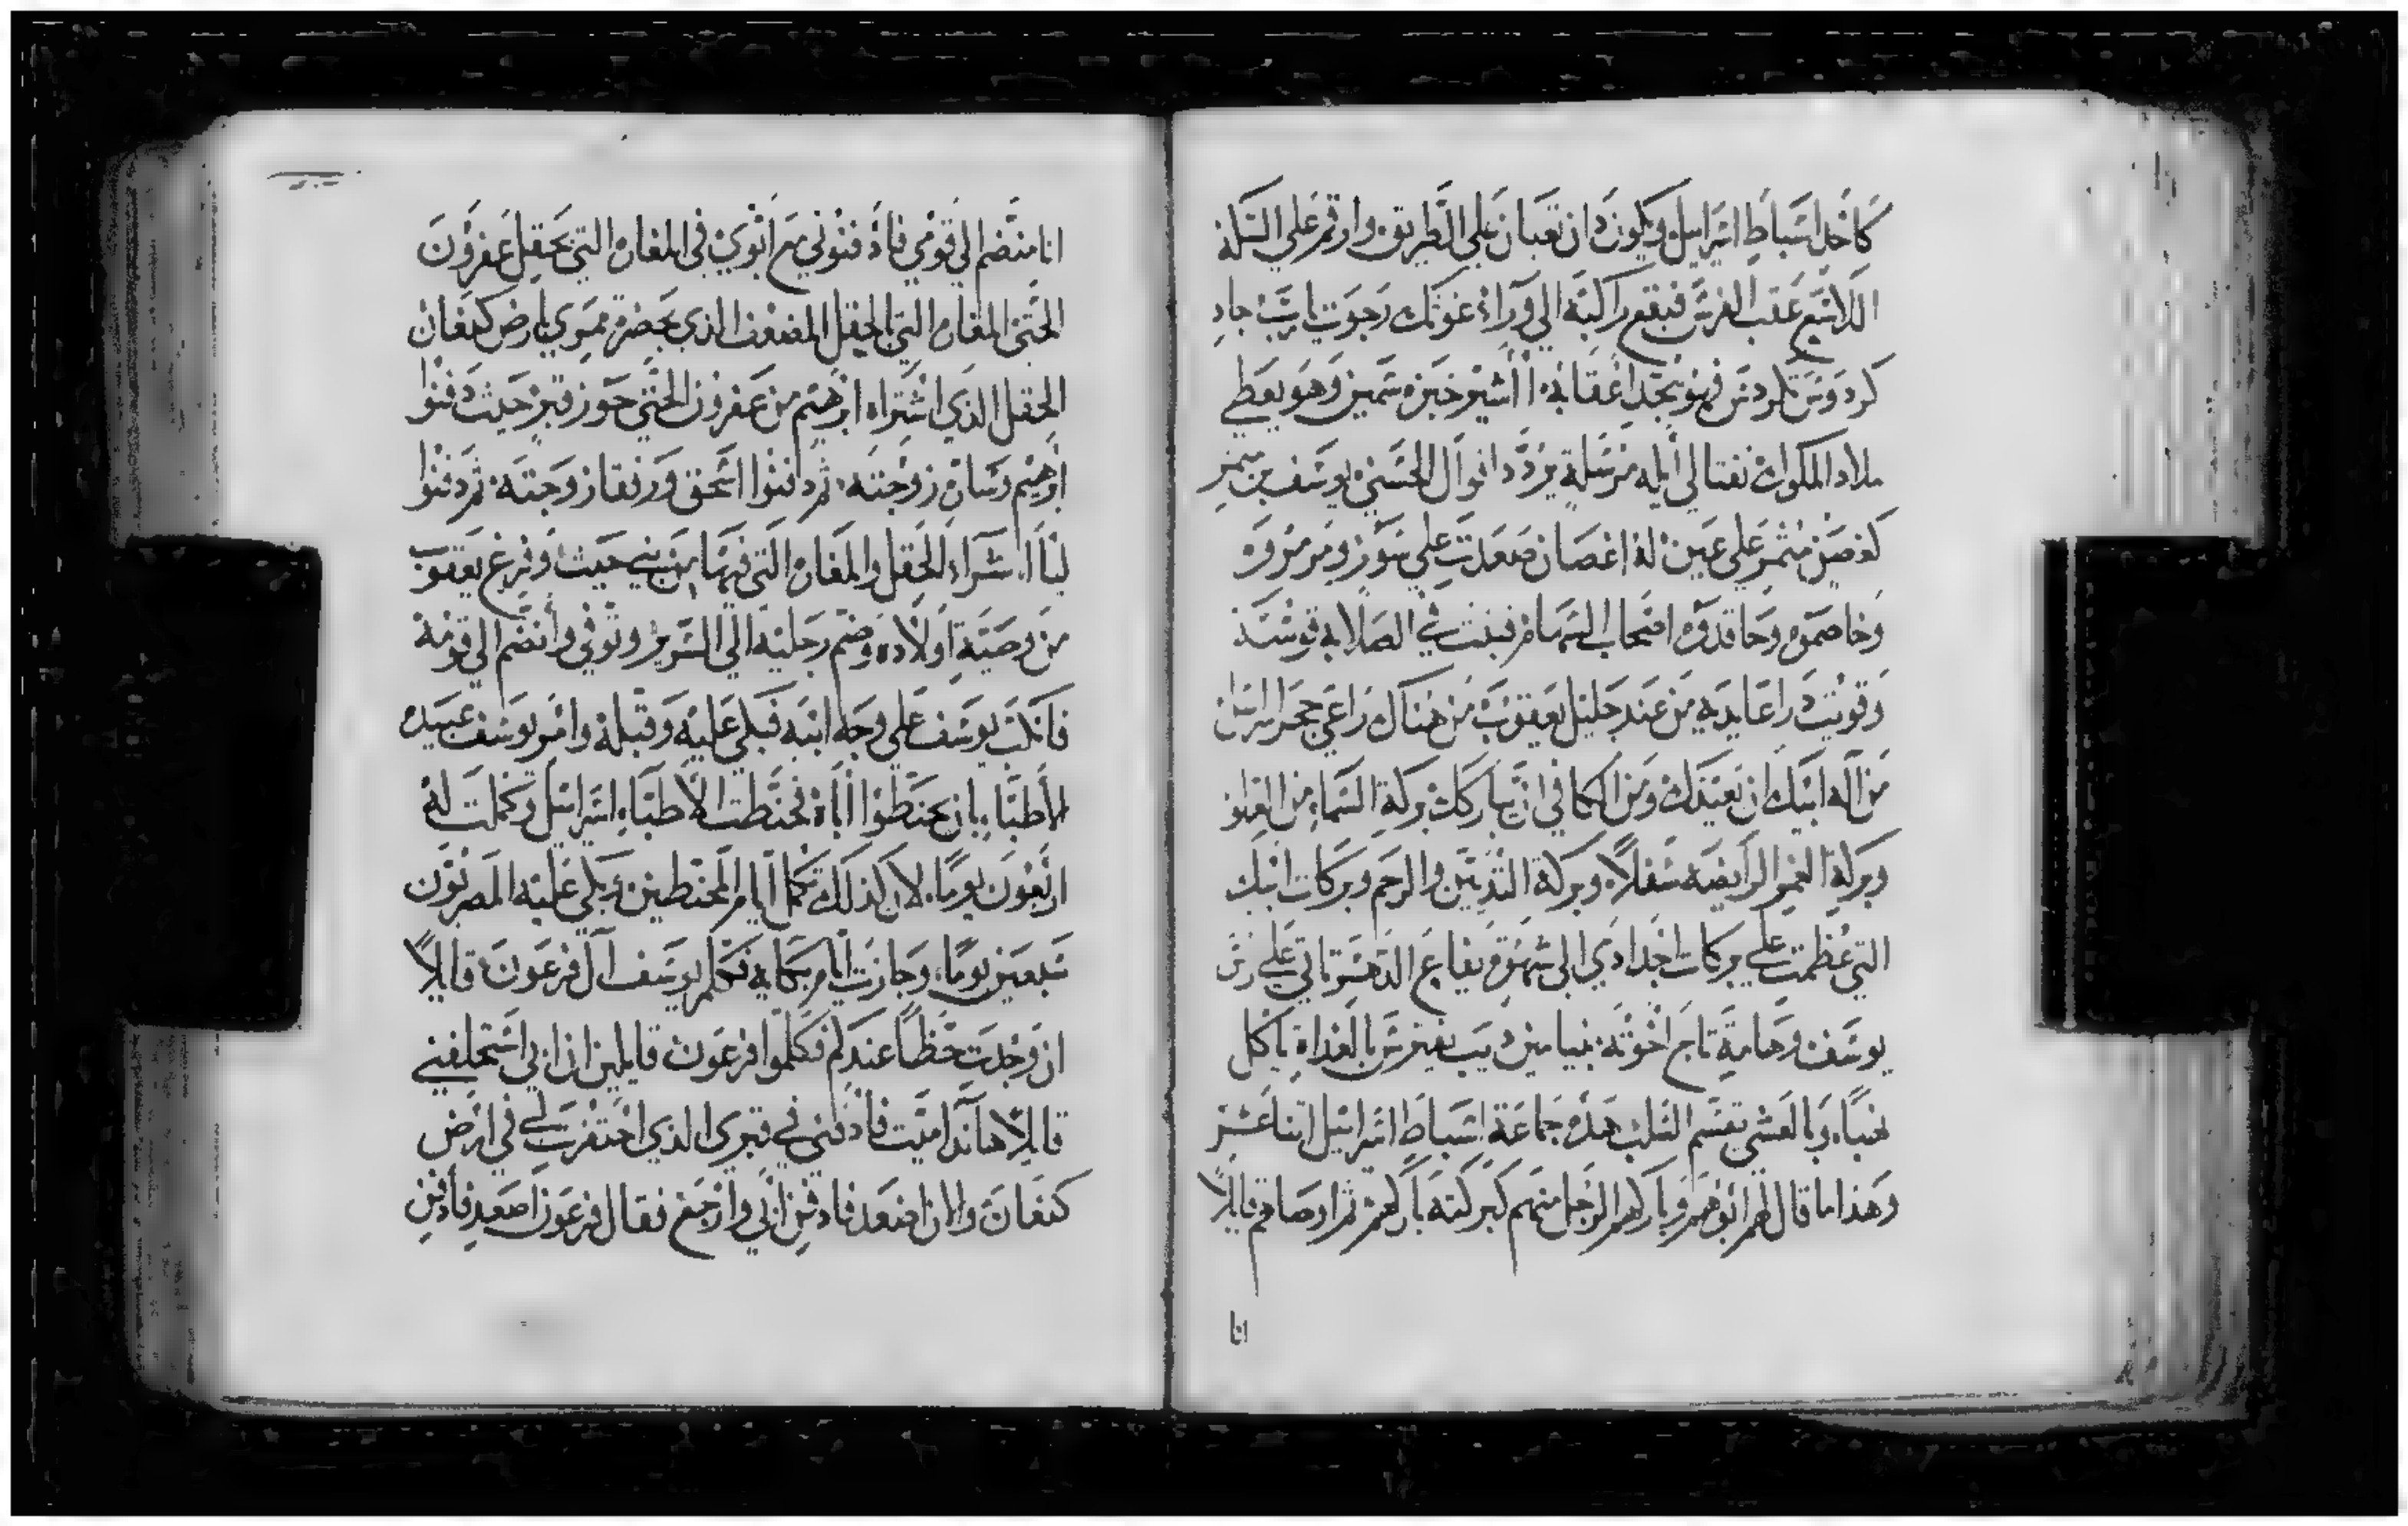 كاحد اسباط اسراييل ويكون دان ثعبان على الطريق وارقم على السكة
اللاسع عقب الفرس فيقع راكبه الى وراء غوثك رجوت يارب جاد
كردوس تكردس فهو يجد اعقابه اشير خبزه سمين وهو يعطي
ملاد الملكوك نفتالي أيله مرسله يردد اقوال الحسن يوسف بن مثمر
كغصن مثمر على عين له اغصان صعدت على سور ومرمروه
وخاصموه وحاقدوه اصحاب السهام فثبتت في الصلابه قوسه
وقويت دراعا يديه من عند جليل يعقوب من هناك راعي حجر اسراييل
من اله ابيك ان يعينك ومن الكافي ان يباركك بركة السماء من العلو
وبركة الغمر الرابضه سفلاً وبركة الثديين والرحم وبركات ابيك
التي عظمت على بركات اجدادي الى شهوة يفاع الدهر تاتي على راس
يوسف وهامة تاج اخوته بنيامين ديب يفترس بالغداة ياكل
نهباً وبالعشي يقسم السلب هذه جماعة اسباط اسراييل اتناعشر
وهذا ما قال لهم ابوهم وباركهم الرجل منهم كبركته باركهم ثم اوصاهم قايلاً
انا
انا منضم الى قومي فادفنوني مع ابوي في المغاره التي بحقل عفرون
الحتي المغاره التي بالحقل المضعف الذي بحضرة ممري بارض كنعان
الحقل الذي اشتراه ابرهيم من عفرون الحتي حوز قبر حيث دفنوا
ابرهيم وساره زوجته ثم دفنوا اسحق ورفقا زوجته ثم دفنوا
ليا اشراء الحقل والمغاره التي فيها من بني حيث وفرغ يعقوب
من وصية اولاده وضم رجليه الى السرير وتوفي وأنضم الى قومه
فانكب يوسف على وجه ابيه فبكى عليه وقبله وامر يوسف عبيده
الأطباء بان يحنطوا اباه فحنطت الاطباء اسراييل وكملت له
اربعون يوماً لان كذلك تكمل ايام المحنطين وبكى عليه المصريون
سبعين يوماً وجازت ايام بكايه فكلم يوسف آل فرعون قايلاً
ان وجدت حظاً عندكم فكلموا فرعون قايلين ان ابي استحلفني
قايلاً هانذا ميت فادفني في قبري الذي احتفرت لي في ارض
كنعان والان اصعد فادفن ابي وارجع فقال فرعون اصعد فأدفن